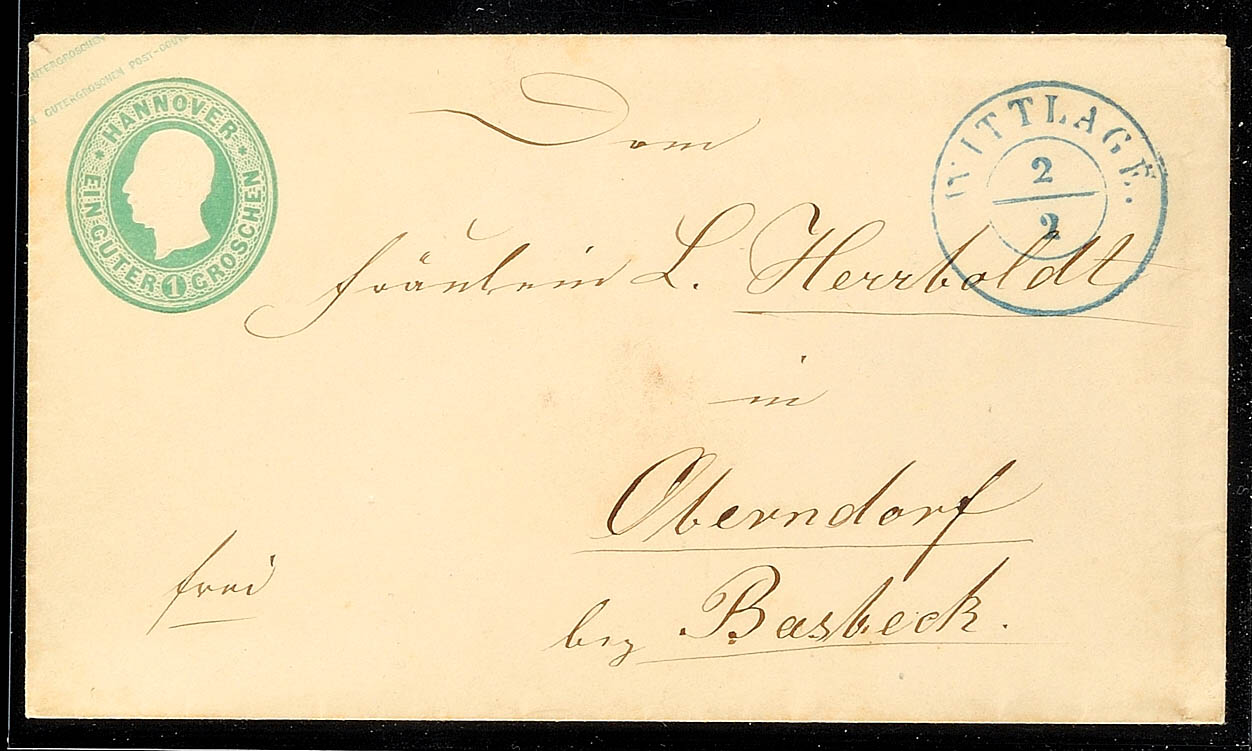 GUTERGROSCHEN
GUTERGROSCHEN POST-COUV
HANNOVER
EIN GUTER 1 GROSCHEN
WITTLAGE.
2
2
Dem
Fräulein L. Herrboldt
in
Oberndorf
frei
bey Basbeck.